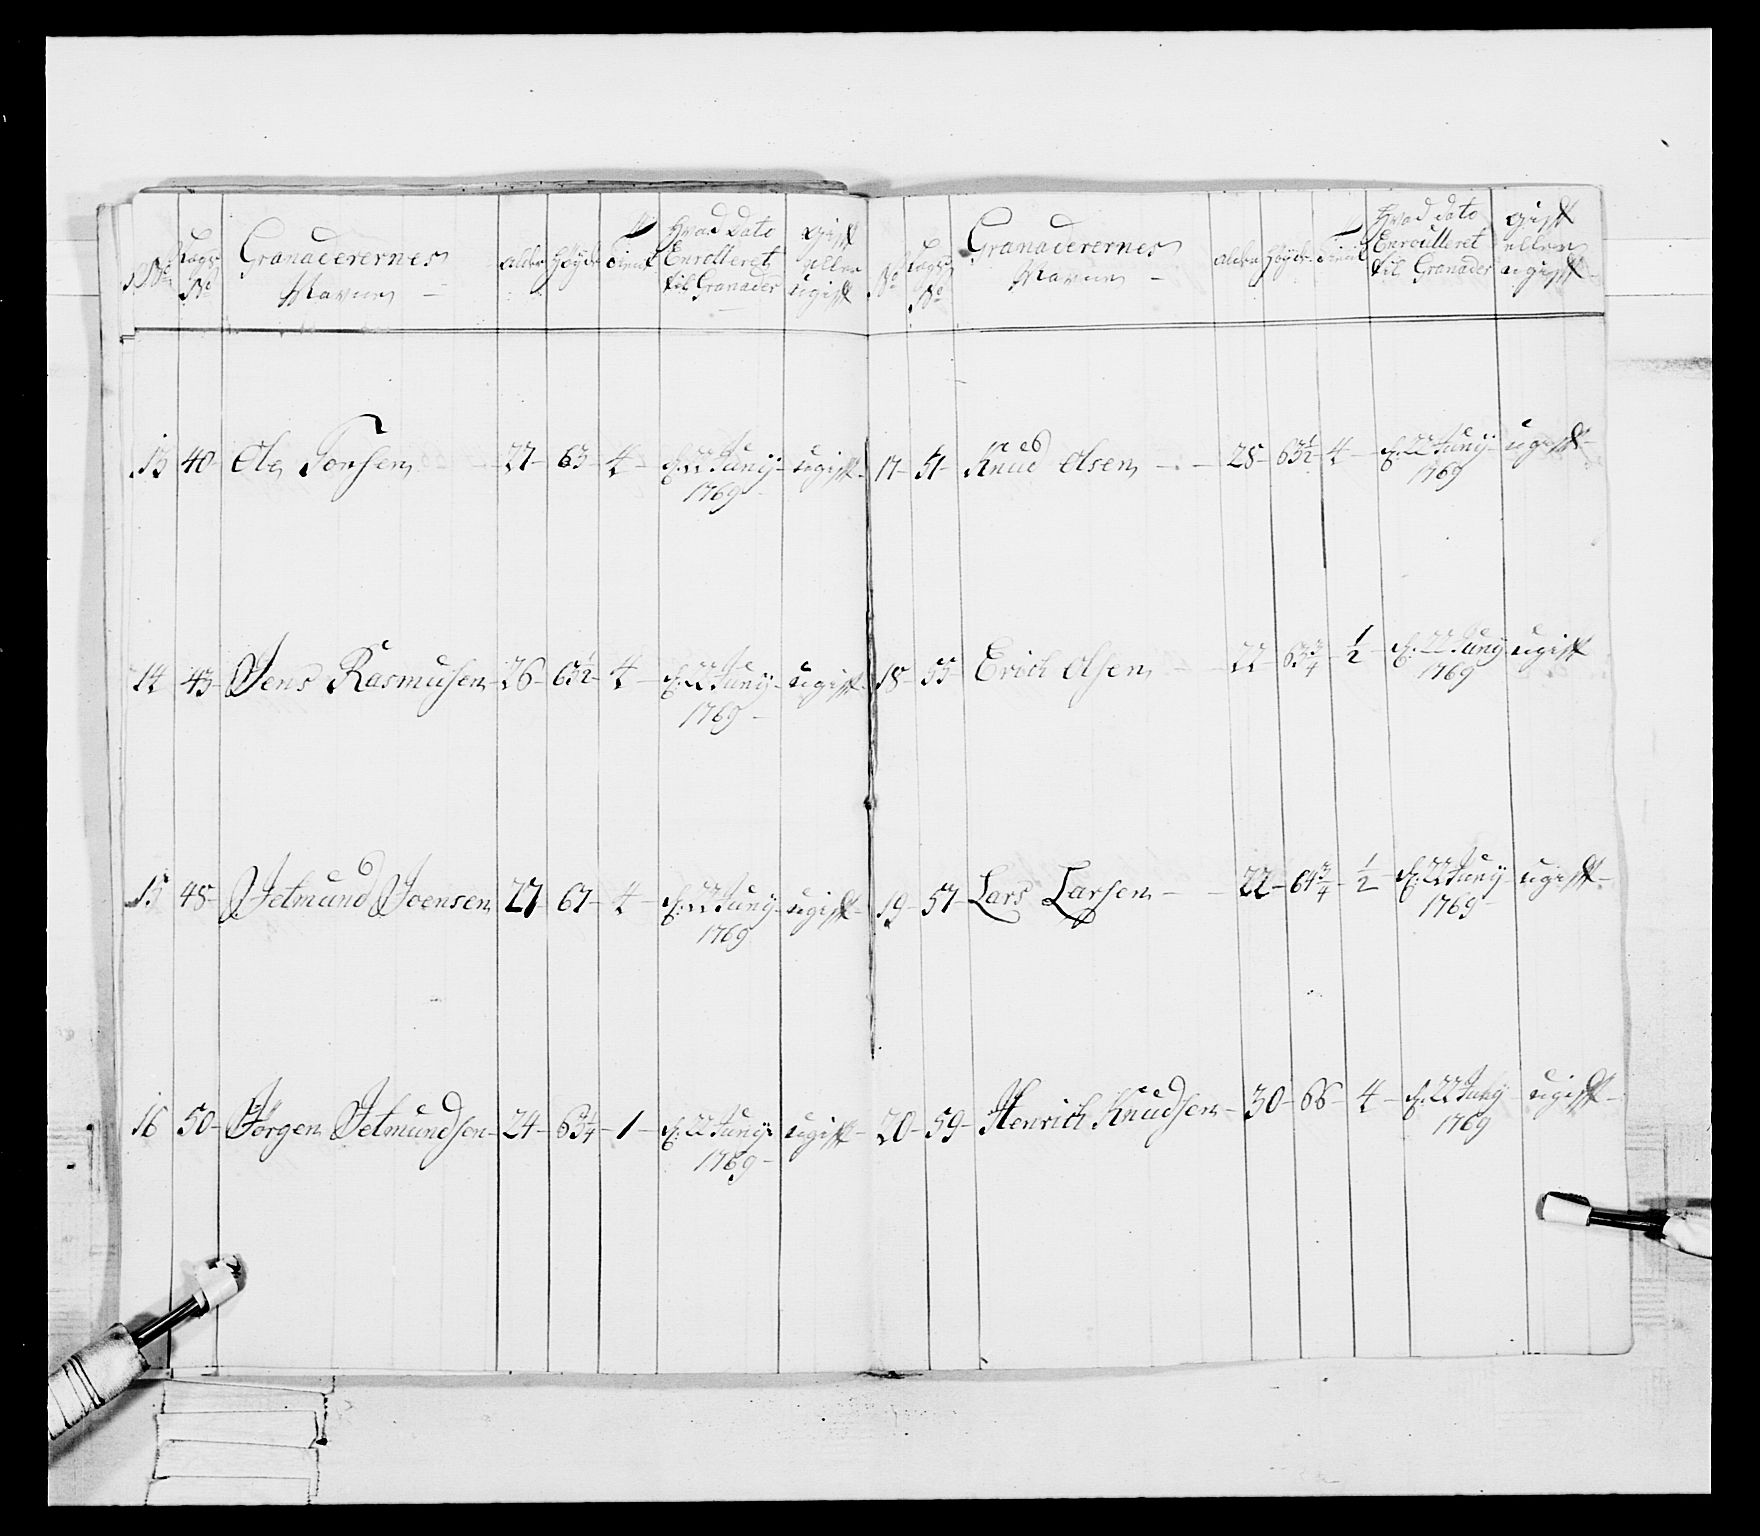 No Lægs No Granaderernes Navne Alder Høyde Tient Hvad Dato Enrolleret til Granader Gift eller ugift
13 40 Ole Tonsen 27 63 4 d. 22 Junij 1769 ugift
14 43 Jens Rasmusen 26 63½ 4 d. 22 Junij 1769 ugift
15 48 Jetmund Joensen 27 67 4 d. 22 Junij 1769 ugift
16 50 Jörgen Jetmundsen 24 63¼ 1 d. 22 Junij 1769 ugift
No Lægs No Granaderernes Navne Alder Høyde Tient Hvad dato Enroulleret til Granader Gift eller ugift
17 51 Knud Olsen 28 63½ 4 d. 22 Junij 1769 ugift
18 55 Erich Olsen 22 63¾ ½ d. 22 Juny 1769 ugift
19 57 Lars Larsen 22 64¾ ½ d. 22 Juny 1769 ugift
20 59 Henrich Knudsen 30 66 4 d. 22 Juny 1769 ugift